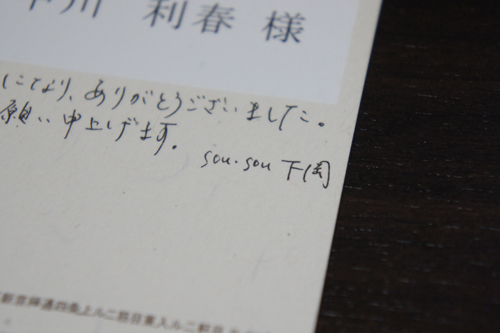 中川 利春 様
になり、ありがとうございました。
願い申上げます。
sou・sou 下岡